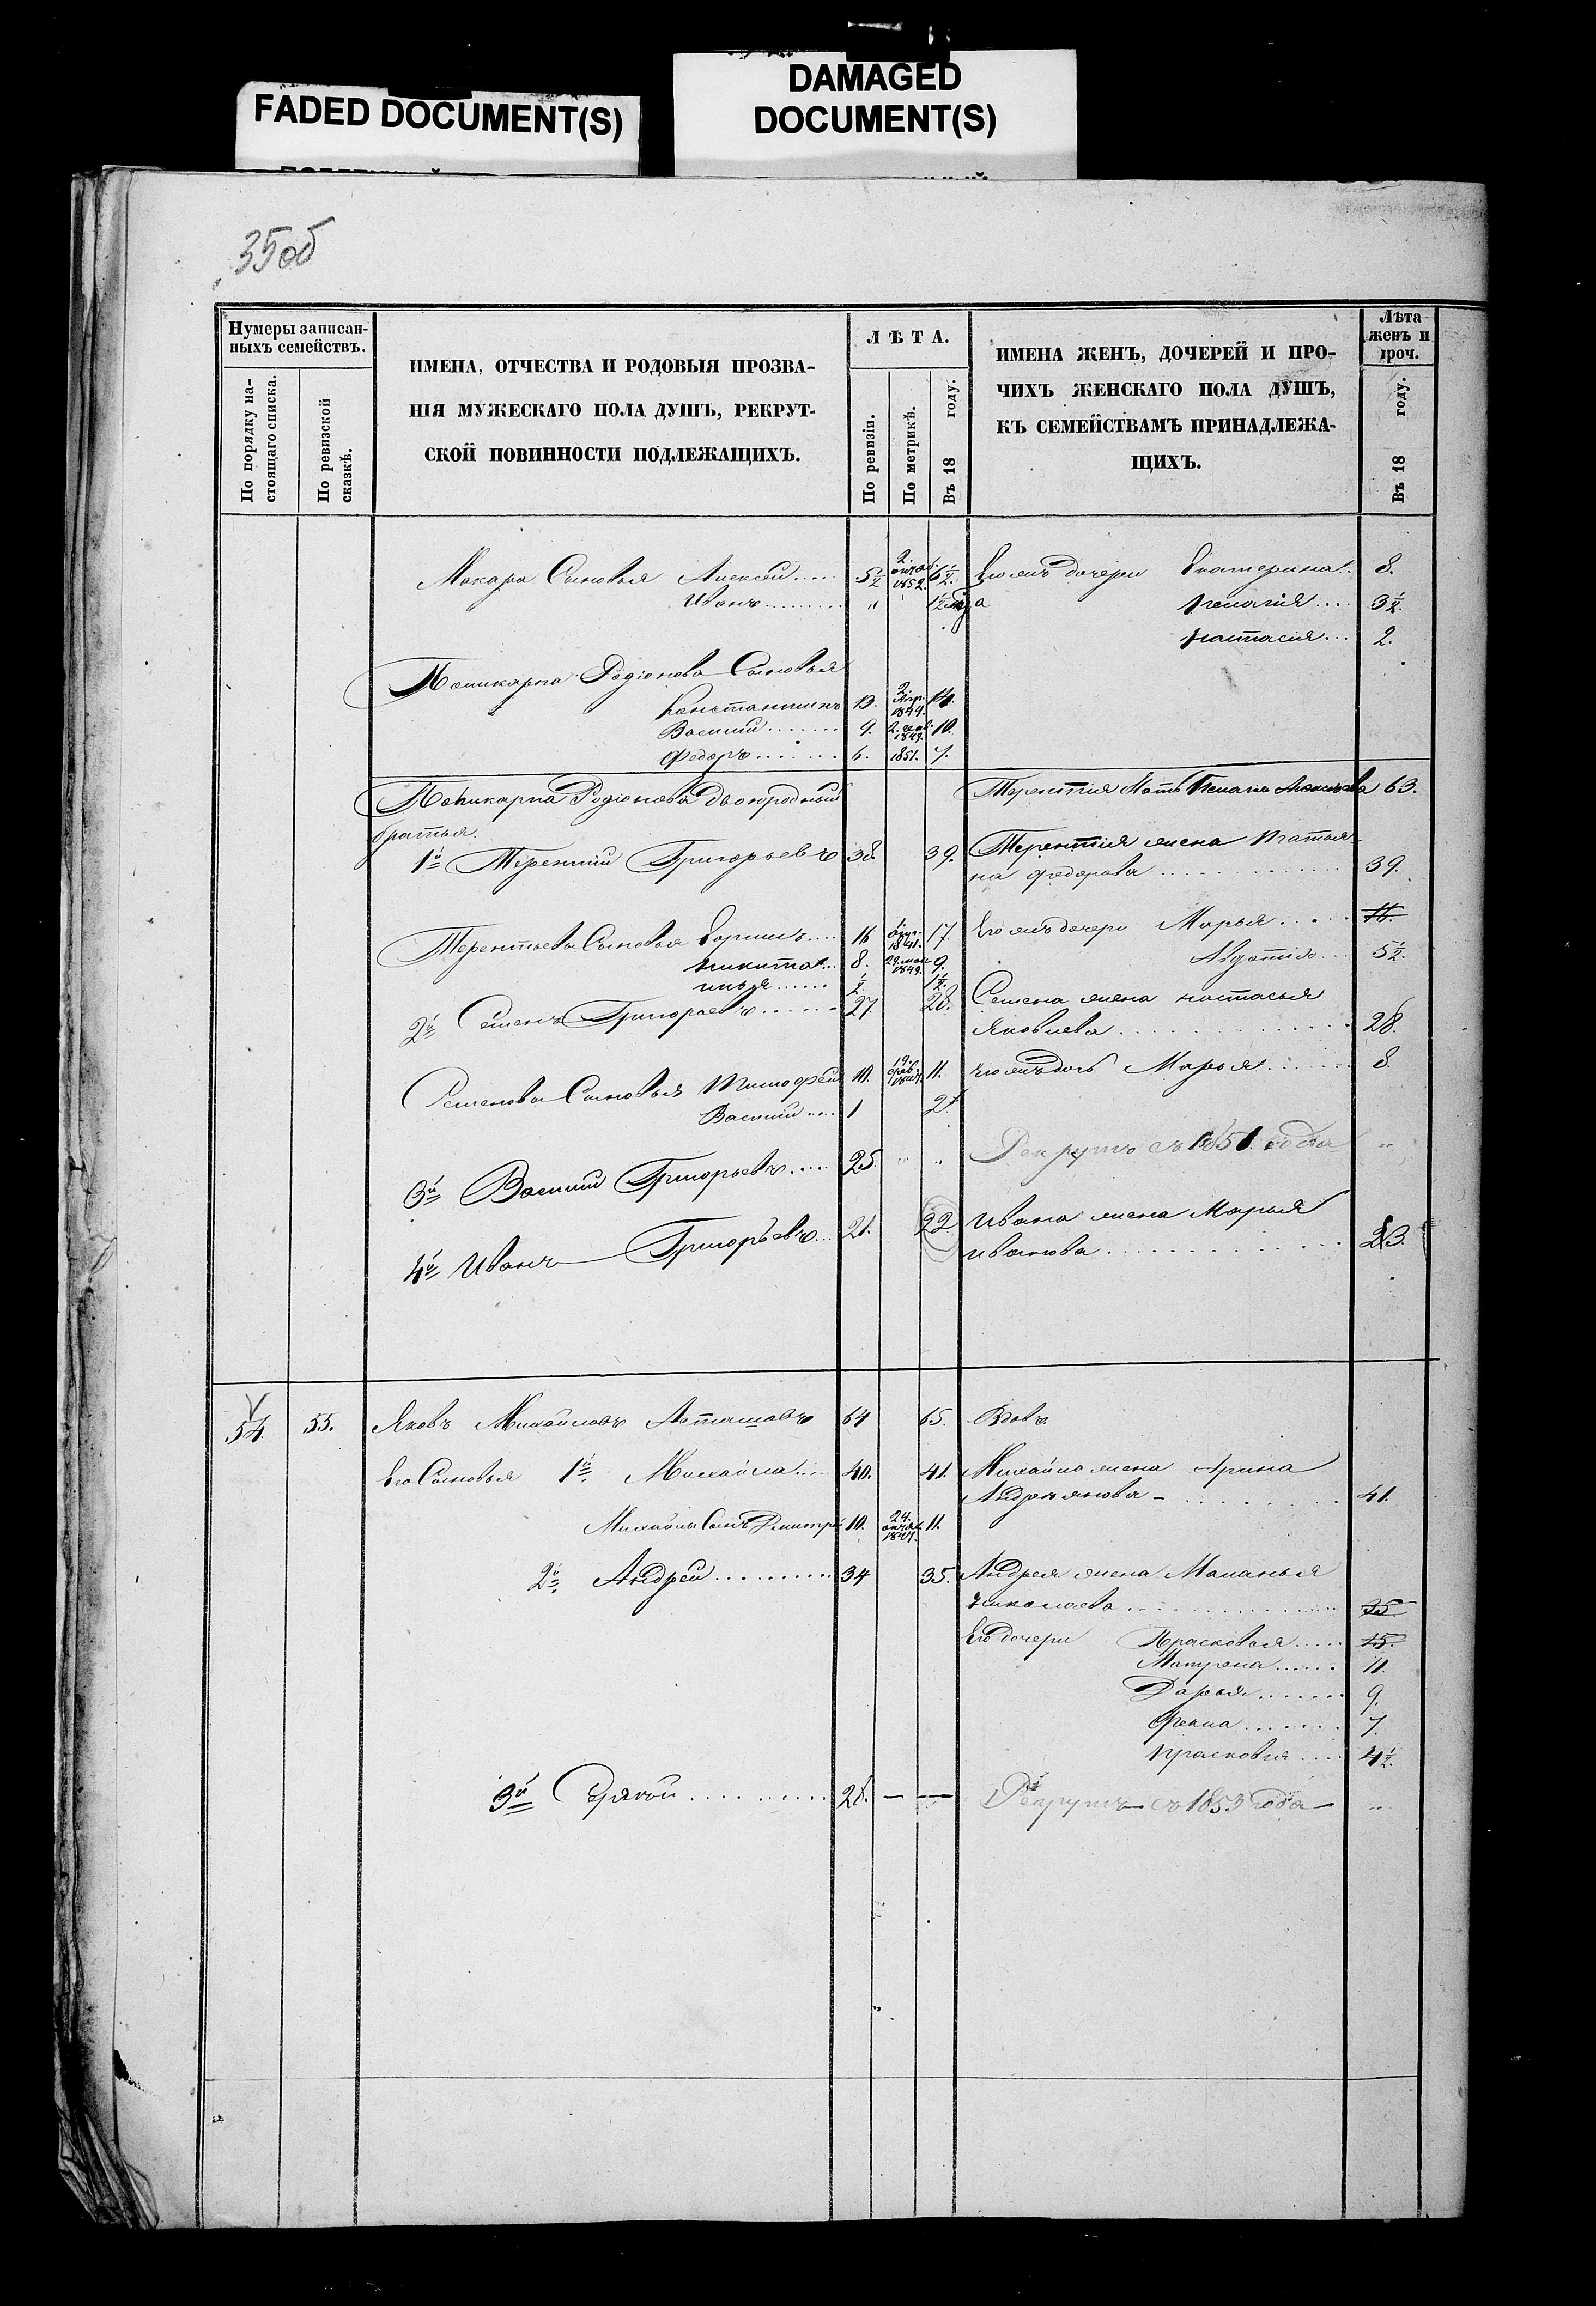 FADED DOCUMENT(S)
DAMAGED
DOCUMENT(S)
35об
Нумеры записан-
ныхъ семействъ.
По порядку на-
стоящаго списка.
По ревизской
сказкѣ.
ИМЕНА, ОТЧЕСТВА И РОДОВЫЯ ПРОЗВА-
НІЯ МУЖЕСКАГО ПОЛА ДУШЪ, РЕКРУТ-
СКОЙ ПОВИННОСТИ ПОДЛЕЖАЩИХЪ.
ЛѢТА.
По ревизіи.
По метрикѣ.
Въ 18 году.
ИМЕНА ЖЕНЪ, ДОЧЕРЕЙ И ПРО-
ЧИХЪ ЖЕНСКАГО ПОЛА ДУШЪ,
КЪ СЕМЕЙСТВАМЪ ПРИНАДЛЕЖА-
ЩИХЪ.
Лѣта
женъ и
проч.
Въ 18 году.
Макара Сыновья Алексей 5½ 1852 6½ дочери Екатерина 8.
Иванъ " 1½ Пелагія 3½
настасия 2.
Поликарпа Родіонова Сыновья
Константинъ 13. 1844. 14.
Василий 9. 1849. 10.
Федоръ 6. 1851. 7.
Поликарпа Родіонова двоюродныи Терентия Мать 63.
братья.
1й Терентий Григорьевъ 38 39. Терентія жена Татья-
на федорова 39.
Терентьева Сыновья 16 1841. 17. дочери Марья 16.
никита 8. 29. мая 1849. 9. 5½
илья ½ 1½
2й Семенъ Григорьевъ 27. 28. Семена жена настасья
Яковлева 28.
Семенова Сыновья Тимофей 10. 19. фев. 1847. 11. Марья 8.
Василий 1 2
3й Василий Григорьевъ 25. " " Рекрутъ съ 1851 года "
4й Иванъ Григорьевъ 21. 22 Ивана жена Марья
иванова 23.
54. 55. Яковъ Михайловъ 64 65. Вдовъ
Его Сыновья 1й Михайла 40. 41. Михайла жена Арина
Андреянова 41.
Михайлы Сынъ Дмитрий 10. 24. октяб. 1847. 11.
2й Андрей 34 35. Андрея жена Маланья
николаева 35
Его дочери Прасковья 15.
Матрена 11.
Дарья 9.
Фекла 7.
прасковия 4½
3й Сергей 28. — — Рекрутъ съ 1853 года "